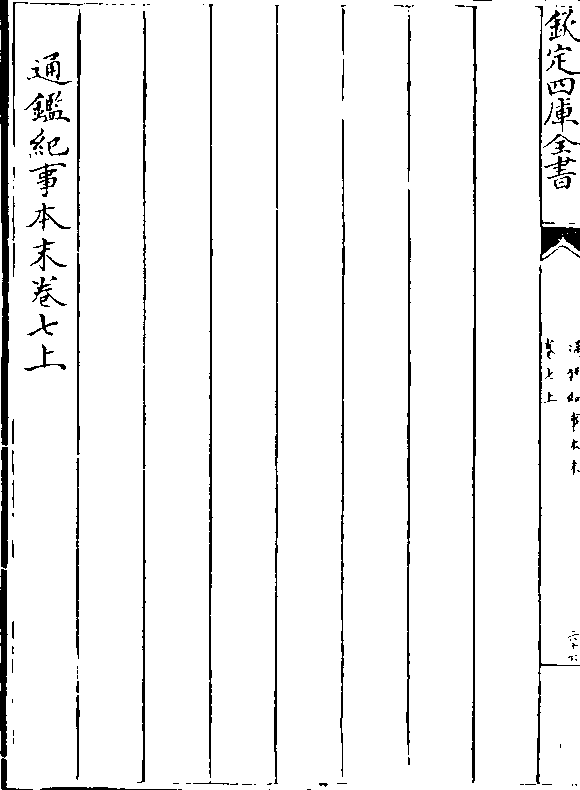 欽定四庫全書
通鑑紀事本末
卷七上
通鑑紀事本末卷七上